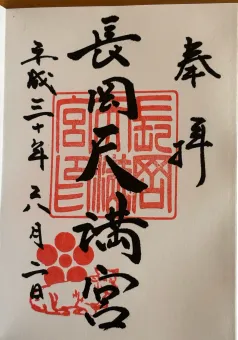 奉拝
長岡天満宮
平成三十年八月二日
長岡天満宮印